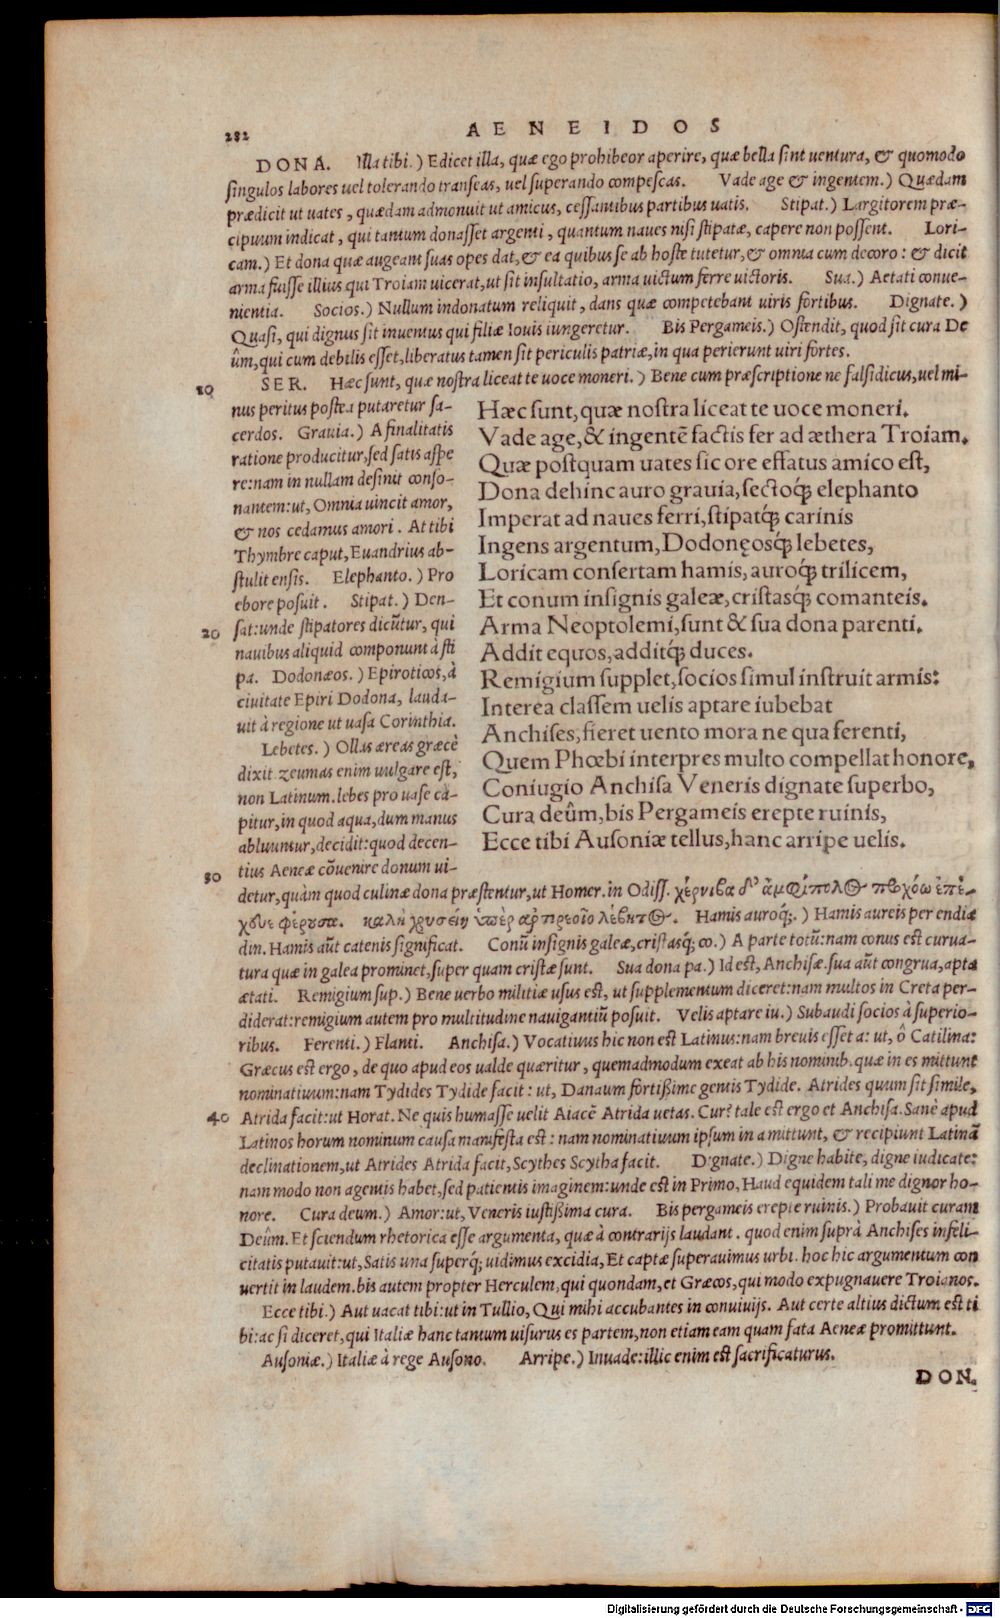 282
AENEIDOS
DONA. Illa tibi.) Edicet illa, quæ ego prohibeor aperire, quæ bella sint uentura, & quomodo
singulos labores uel tolerando transeas, uel superando compescas. Vade age & ingentem.) Quædam
prædicit ut uates, quædam admonuit ut amicus, cessantibus partibus uatis. Stipat.) Largitorem præ-
cipuum indicat, qui tantum donasset argenti, quantum naues nisi stipatæ, capere non possent. Lori-
cam.) Et dona quæ augeant suas opes dat, & ea quibus se ab hoste tutetur, & omnia cum decoro: & dicit
arma fuisse illius qui Troiam uicerat, ut sit insultatio, arma uictum ferre uictoris. Sua.) Aetati conue-
nientia. Socios.) Nullum indonatum reliquit, dans quæ competebant uiris fortibus. Dignate.)
Quasi, qui dignus sit inuentus qui filiæ Iouis iungeretur. Bis Pergameis.) Ostendit, quod sit cura De
ûm, qui cum debilis esset, liberatus tamen sit periculis patriæ, in qua perierunt uiri fortes.
10 SER. Hæc sunt, quæ nostra liceat te uoce moneri.) Bene cum præscriptione ne falsidicus, uel mi-
nus peritus postea putaretur sa-
cerdos. Grauia.) A finalitatis
ratione producitur, sed satis aspe
re: nam in nullam desinit conso-
nantem: ut, Omnia uincit amor,
& nos cedamus amori. At tibi
Thymbre caput, Euandrius ab-
stulit ensis. Elephanto.) Pro
ebore posuit. Stipat.) Den-
20 sat: unde stipatores dicũtur, qui
nauibus aliquid componunt à sti
pa. Dodonæos.) Epiroticos, à
ciuitate Epiri Dodona, lauda-
uit à regione ut uasa Corinthia.
Lebetes.) Ollas æreas græcè
dixit. zeumas enim uulgare est,
non Latinum. lebes pro uase ca-
pitur, in quod aqua, dum manus
abluuntur, decidit: quod decen-
30 tius Aeneæ cõuenire donum ui-
Hæc sunt, quæ nostra liceat te uoce moneri.
Vade age, & ingentẽ factis fer ad æthera Troiam.
Quæ postquam uates sic ore effatus amico est,
Dona dehinc auro grauia, sectoq́; elephanto
Imperat ad naues ferri, stipatq́; carinis
Ingens argentum, Dodonęosq́; lebetes,
Loricam consertam hamis, auroq́; trilicem,
Et conum insignis galeæ, cristasq́; comanteis.
Arma Neoptolemi, sunt & sua dona parenti.
Addit equos, additq́; duces.
Remigium supplet, socios simul instruit armis:
Interea classem uelis aptare iubebat
Anchises, fieret uento mora ne qua ferenti,
Quem Phœbi interpres multo compellat honore,
Coniugio Anchisa Veneris dignate superbo,
Cura deûm, bis Pergameis erepte ruinis,
Ecce tibi Ausoniæ tellus, hanc arripe uelis.
detur, quàm quod culinæ dona præstentur, ut Homer. in Odiss. χέρνιβα δ' ἀμφίπολος προχόῳ ἐπέ-
χευε φέρουσα. καλῇ χρυσείῃ ὑπὲρ ἀργυρέοιο λέβητος. Hamis auroq́;.) Hamis aureis per endiæ
din. Hamis aũt catenis significat. Conũ insignis galeæ, cristasq́; co.) A parte totũ: nam conus est curua-
tura quæ in galea prominet, super quam cristæ sunt. Sua dona pa.) Id est, Anchisæ. sua aũt congrua, apta
ætati. Remigium sup.) Bene uerbo militiæ usus est, ut supplementum diceret: nam multos in Creta per-
diderat: remigium autem pro multitudine nauigantiũ posuit. Velis aptare iu.) Subaudi socios à superio-
ribus. Ferenti.) Flanti. Anchisa.) Vocatiuus hic non est Latinus: nam breuis esset a: ut, ô Catilina:
Græcus est ergo, de quo apud eos ualde quæritur, quemadmodum exeat ab his nominib. quæ in es mittunt
nominatiuum: nam Tydides Tydide facit: ut, Danaum fortißime gentis Tydide. Atrides quum sit simile,
40 Atrida facit: ut Horat. Ne quis humasse uelit Aiacẽ Atrida uetas. Cur? tale est ergo et Anchisa. Sanè apud
Latinos horum nominum causa manifesta est: nam nominatiuum ipsum in a mittunt, & recipiunt Latinã
declinationem, ut Atrides Atrida facit, Scythes Scytha facit. Dignate.) Digne habite, digne iudicate:
nam modo non agentis habet, sed patientis imaginem: unde est in Primo, Haud equidem tali me dignor ho-
nore. Cura deum.) Amor: ut, Veneris iustißima cura. Bis pergameis erepte ruinis.) Probauit curam
Deûm. Et sciendum rhetorica esse argumenta, quæ à contrarijs laudant. quod enim suprà Anchises infeli-
citatis putauit: ut, Satis una superq́; uidimus excidia, Et captæ superauimus urbi. hoc hic argumentum con
uertit in laudem. bis autem propter Herculem, qui quondam, et Græcos, qui modo expugnauere Troianos.
Ecce tibi.) Aut uacat tibi: ut in Tullio, Qui mihi accubantes in conuiuijs. Aut certe altius dictum est ti
bi: ac si diceret, qui Italiæ hanc tantum uisurus es partem, non etiam eam quam fata Aeneæ promittunt.
Ausoniæ.) Italiæ à rege Ausono. Arripe.) Inuade: illic enim est sacrificaturus.
DON.
Digitalisierung gefördert durch die Deutsche Forschungsgemeinschaft - DFG